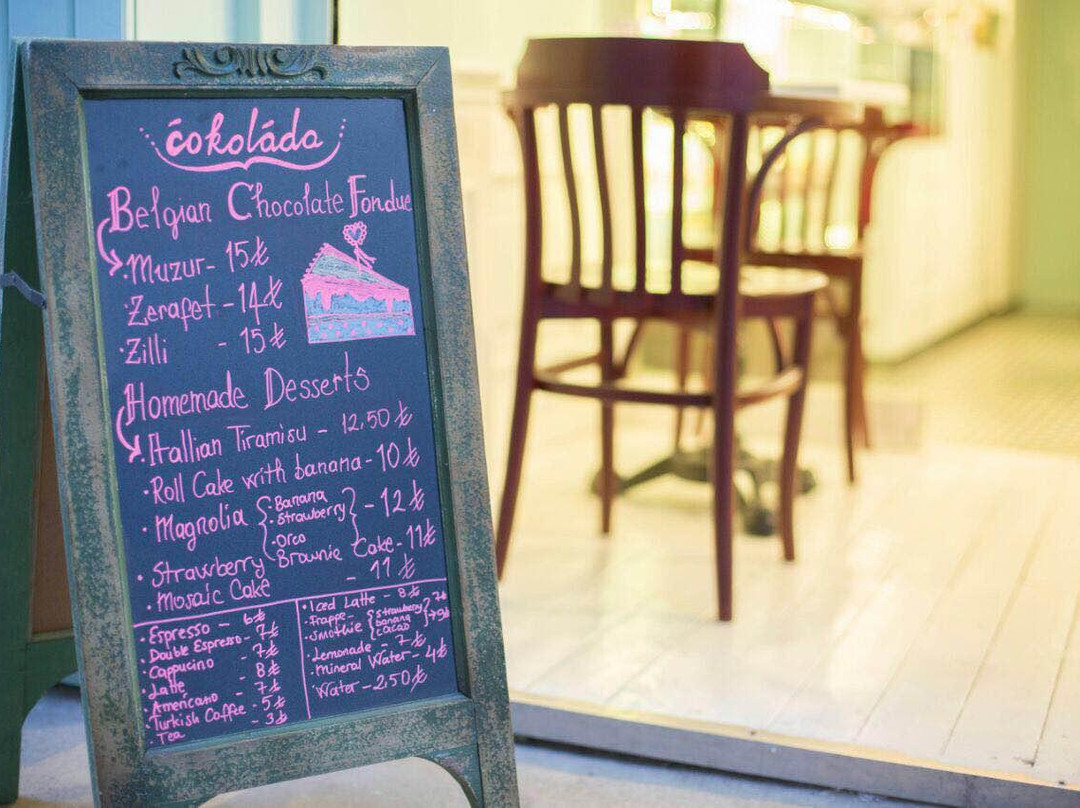 ćokoláda
Belgian Chocolate Fondue
Muzur- 15₺
· Zerafet - 14₺
· Zilli - 15₺
Homemade Desserts
· Itallian Tiramisu - 12,50 ₺
· Roll Cake with banana - 10 ₺
· Magnolia { · Banana · Strawberry · Oreo } - 12 ₺
· Strawberry Brownie Cake - 11₺
· Mosaic Cake - 11 ₺
· Espresso - 6₺
· Double Espresso - 7₺
· Cappucino - 7₺
· Latte - 8₺
· Americano - 7₺
· Turkish Coffee - 5₺
· Tea - 3₺
· Iced Latte - 8₺
· Frappe -
· Smothie { Strawberry banana cacao }
· Lemonade - 7₺
· Mineral Water - 4₺
· Water - 2,50₺